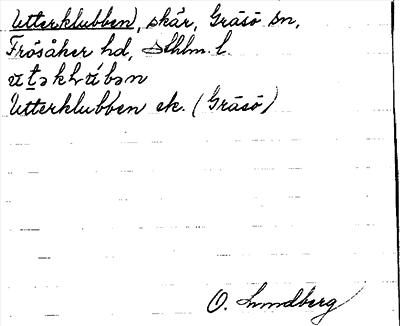 Utterklubben, skär, Gräsö sn,
Frösåker hd, Sthlm. l.
Utterklubben ek. (Gräsö)
O. Lundberg